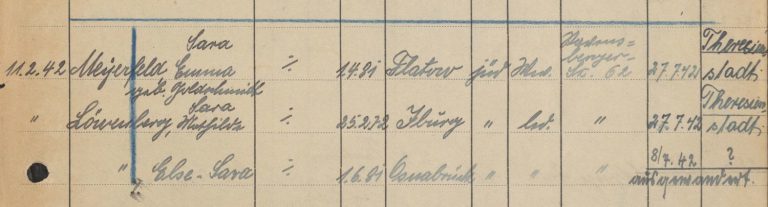 Sara
11.2.42 Meyerfeld Emma ⁒ 1.4.81 Flatow jüd Ww. 27.7.42 Theresien
geb. Goldschmidt berger- Str. 62 stadt.
Sara
" Löwenberg, Mathilde ⁒ 25.2.72 Iburg " led. " 27.7.42 Theresien
stadt.
8/7.42 ?
" Else-Sara ⁒ 1.6.81 Osnabrück " " " ausgewandert.